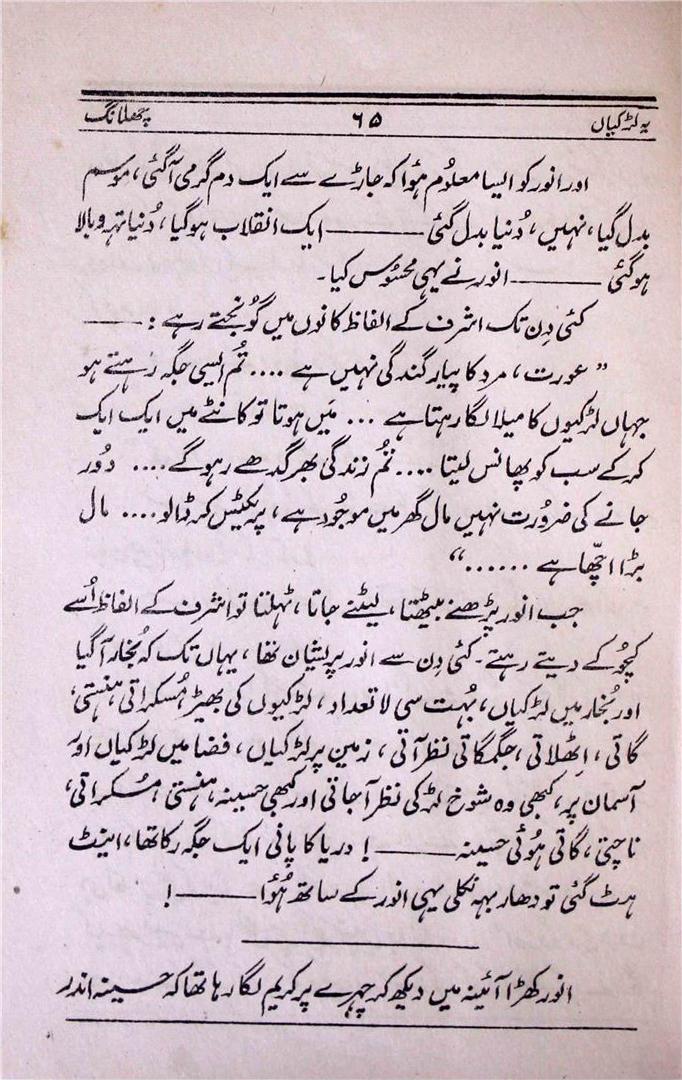 یہ لڑکیاں ۶۵ چھلانگ
اور انور کو ایسا معلوُم ہؤا کہ جاڑے سے ایک دم گرمی آگئی، موسم
بدل گیا، نہیں، دُنیا بدل گئی ——— ایک انقلاب ہوگیا، دُنیا تہہ و بالا
ہوگئی ——— انور نے یہی محسوُس کیا۔
کئی دِن تک اشرف کے الفاظ کانوں میں گوُنجتے رہے :——
” عورت، مرد کا پیار گندگی نہیں ہے .... تُم ایسی جگہ رہتے ہو
جہاں لڑکیوں کا میلا لگا رہتا ہے ... مَیں ہوتا تو کانٹے میں ایک ایک
کرکے سب کو پھانس لیتا .... تُم زندگی بھر گدھے رہوگے .... دوُر
جانے کی ضروُرت نہیں مال گھر میں موجوُد ہے، پریکٹس کر ڈالو .... مال
بڑا اچّھا ہے ......“
جب انور پڑھنے بیٹھتا، لیٹنے جاتا، ٹہلتا تو اشرف کے الفاظ اُسے
کچوُکے دیتے رہتے۔ کئی دِن سے انور پریشان تھا، یہاں تک کہ بُخار آگیا
اور بُخار میں لڑکیاں، بہُت سی لاتعداد، لڑکیوں کی بھیڑ مُسکراتی، ہنستی،
گاتی، اِٹھلاتی، جگمگاتی نظر آتی، زمین پر لڑکیاں، فضا میں لڑکیاں اور
آسمان پر، کبھی وہ شوخ لڑکی نظر آجاتی اور کبھی حسینہ، ہنستی، مُسکراتی،
ناچتی، گاتی ہوُئی حسینہ ———! دریا کا پانی ایک جگہ رکا تھا، اینٹ
ہٹ گئی تو دھار بہہ نکلی یہی انور کے ساتھ ہوُا ———!
انور کھڑا آئینہ میں دیکھ کر چہرے پر کریم لگا رہا تھا کہ حسینہ اندر